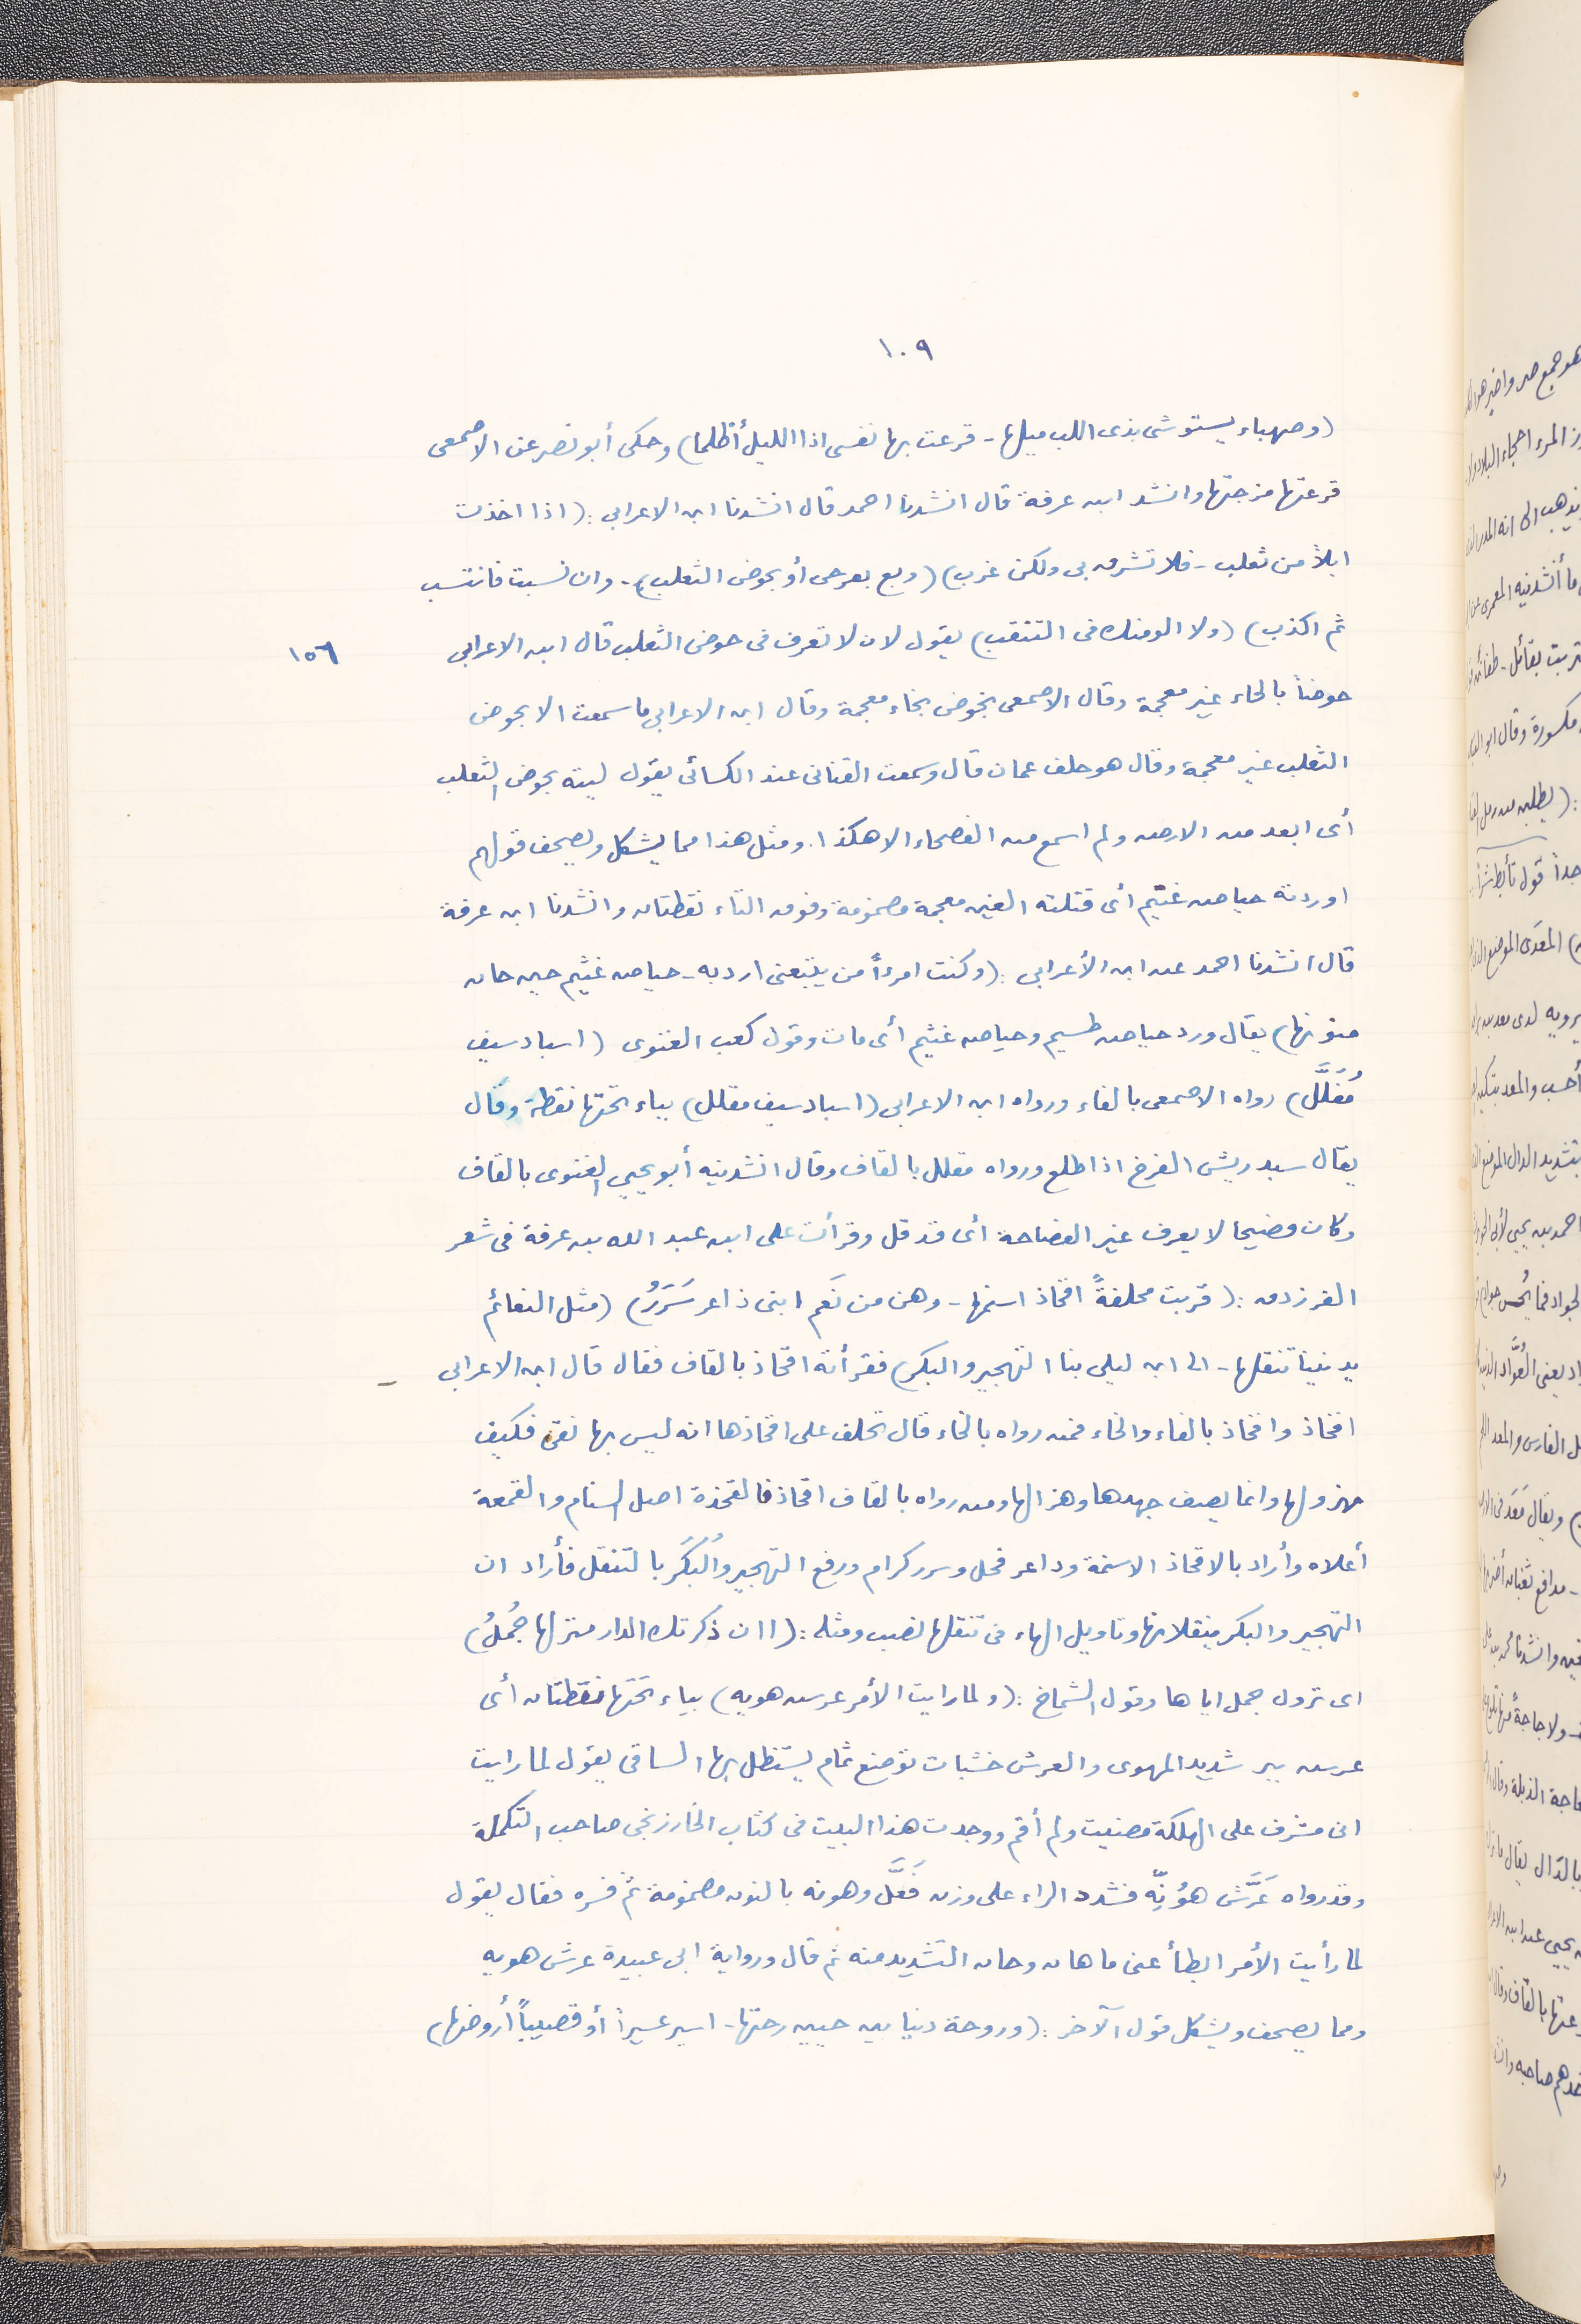 ١٠٩
(وصهباء يستوشى بذى اللب ميلها - قرعت بها نفسى اذا الليل أظلما) وحكى أبو نصر عن الاصمعى
قرعتها مزجتها وانشد ابن عرفة قال انشدنا احمد قال انشدنا ابن الاعرابى: (اذا اخذت
ابلاً من ثعلب - فلا تشرق بى ولكن غرب) (وبع بعرحى أو بحوض الثعلب) - وان نسبت فانتسب
ثم اكذب) (ولا الومنك فى التنقب) يقول لان لا تعرف فى حوض الثعلب قال ابن الاعرابى
١٥٦
حوضاً بالحاء غير معجمة وقال الاصمعى بخوض بخاء معجمة وقال ابن الاعرابى ما سمعت الا بحوض
الثعلب غير معجمة وقال هو خلف عمان قال وسمعت القنانى عند الكسائى يقول ليته بحوض الثعلب
أى ابعد من الارض ولم اسمع من الفصحاء الا هكذا. ومثل هذا مما يشكل ويصحف قولهم
اوردته حياض غتيم أى قتلته الغين معجمة مضمومة وفوق التاء نقطتان وانشدنا ابن عرفة
قال انشدنا احمد عن ابن الأعرابى: (وكنت امرءاً من يتبعنى ارد به - حياض غثيم حين حان
منونها) يقال ورد حياض طسيم وحياض غثيم أى مات وقول كعب الغنوى (اسباد سيف
مُفَلَّل) رواه الاصمعى بالفاء ورواه ابن الاعرابى (اسباد سيف مقلل) بباء تحتها نقطة وقال
يقال سبد ريش الفرخ اذا طلع ورواه مقلل بالقاف وقال انشدنيه أبو يحيى الغنوى بالقاف
وكان فصيحا لا يعرف غير الفصاحة أى قد قل وقرأت على ابن عبد الله بن عرفة فى شعر
الفرزدق: (قربت محلفةً افخاذ اسنمها - وهن من نَعَم ابنى ذاعر سَرَرُ) (مثل النعائم
يدنينا تنقلها - الى ابن ليلى بنا التهجير والبكر) فقرأته اقحاذ بالقاف فقال قال ابن الاعرابى
افخاذ واقحاذ بالفاء والخاء فمن رواه بالخاء قال تحلف على افخاذها انه ليس بها نقى فكيف
مهزولها وانما يصف جهدها وهزالها ومن رواه بالقاف اقحاذ فالقحذة اصل السنام والقمعة
أعلاه وأراد بالاقحاذ الاسنمة وداعر فحل وسرر كرام ورفع التهجير والبُكَرُ بالتنقل فأراد ان
التهجير والبكر ينقلانها وتاويل الهاء فى تنقلها نصب ومثله: (اان ذكرتك الدار منزلها جُملُ)
اى نزول جمل اياها وقول الشماخ: (ولما رايت الأمر عرش هويه) بياء تحتها نقطتان أى
عرش بير شديد المهوى والعرش خشبات توضع ثمام يستظل بها الساقى يقول لما رايت
انى مشرف على الهلكة مضيت ولم أقم ووجدت هذا البيت فى كتاب الخارزنجى صاحب التكملة
وقد رواه عَرَّش هوُنةٍ فشدد الراء على وزن فَعَّل وهونه بالنون مضمومة ثم فسره فقال يقول
لما رأيت الأمر ابطأ عنى ما هان وحان التشديد منه ثم قال ورواية ابى عبيدة عرش هويه
ومما يصحف ويشكل قول الآخر: (وروحة دنيا بين حيين رحتها - اسير عسيراً أو قضيباً أروضها)